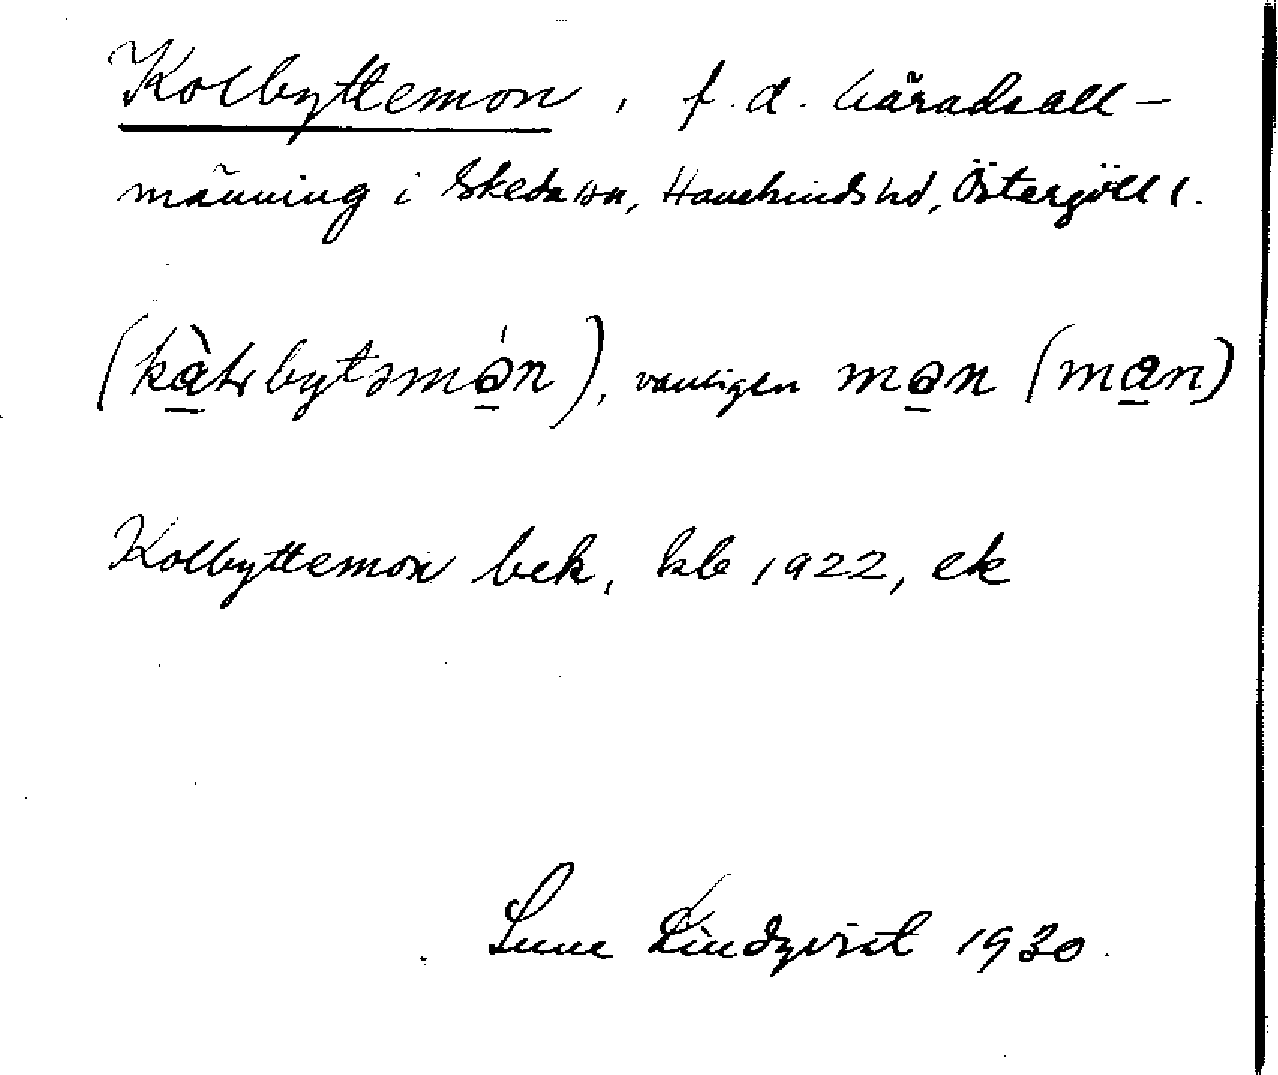 Kolbyttemon, f.d. häradsall-
männing i Skeda sn, Hanekinds hd, Östergötl l.
(kàlɹbytəmə́n), vanligen mən (man)
Kolbyttemon bek, kb 1922, ek
Sune Lindqvist 1930.